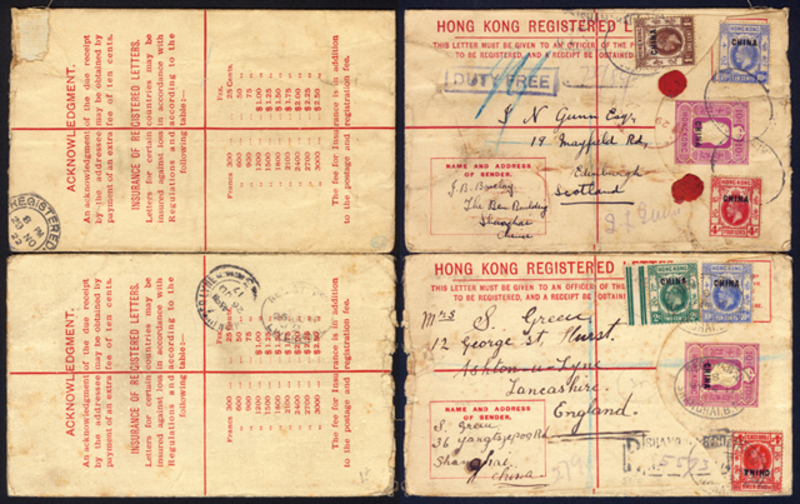 ACKNOWLEDGMENT.
An acknowledgment of the due receipt
by the addressee may be obtained by
payment of an extra fee of ten cents.
INSURANCE OF REGISTERED LETTERS.
Letters for certain countries may be
insured against loss in accordance with
Regulations and according to the
following table:—
Frs. 25 Cents.
Francs 300 ... 25 Cents.
600 ... 50
900 ... 75
1200 ... $1.00
1500 ... $1.25
1800 ... $1.50
2100 ... $1.75
2400 ... $2.00
2700 ... $2.25
3000 ... $2.50
The fee for Insurance is in addition
to the postage and registration fee.
REGISTERED
6 PM
29 NO
22
HONG KONG REGISTERED LE
THIS LETTER MUST BE GIVEN TO AN OFFICER OF THE P
TO BE REGISTERED, AND A RECEIPT OBTAINED
DUTY FREE
HONG KONG
CHINA
CHINA
CHINA
HONG KONG
CHINA
J N Gunn Esq,
19 Mayfield Rd,
Edinburgh
Scotland
NAME AND ADDRESS
OF SENDER.
J.B. Barclay
The Ben Building
Shanghai
China
ACKNOWLEDGMENT.
An acknowledgment of the due receipt
by the addressee may be obtained by
payment of an extra fee of ten cents.
INSURANCE OF REGISTERED LETTERS.
Letters for certain countries may be
insured against loss in accordance with
Regulations and according to the
following table:—
Francs 300
600
900
1200 $1.00
1500 $1.25
1800 $1.50
2100 $1.75
2400 $2.00
2700 $2.25
3000 $2.50
The fee for Insurance is in addition
to the postage and registration fee.
HONG KONG REGISTERED
THIS LETTER MUST BE GIVEN TO AN OFFICER OF THE
TO BE REGISTERED, AND A RECEIPT OBTAIN
CHINA
CHINA
CHINA
CHINA
Mrs S. Green
12 George St, Hurst.
Ashton-u-Lyne
Lancashire.
England.
NAME AND ADDRESS
OF SENDER.
S. Green
36 Yangtszepoo Rd
Shanghai
China
SHANGHAI B.